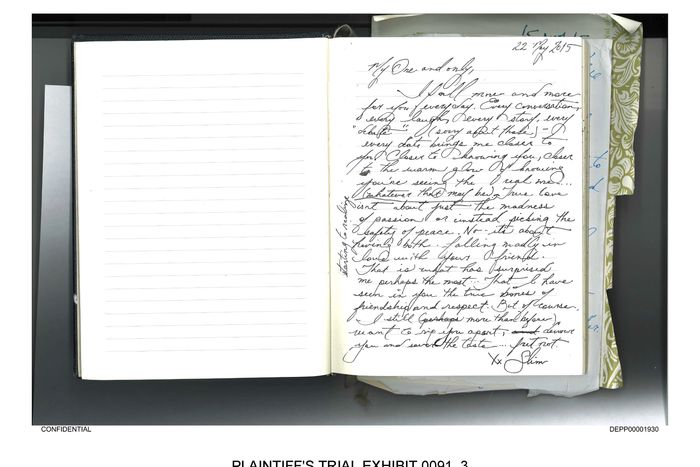 22 May 2015
My One and only,
I fall more and more
for you, everyday. Every conversation,
every laugh, every story, every
"debate" (sorry about those!) - I
every date brings me closer to
you. Closer to knowing you, closer
to the warm glow of knowing
you're seeing the real me...
(whatever that may be). True love
isnt about just the madness
of passion or instead picking the
safety of peace. No - its about
having both. falling madly in
love with your friend.
That is what has surprised
me perhaps the most... That I have
seen in you the true bones of
friendship and respect. But of course,
I still (perhaps more than before)
want to rip you apart, devour
you and savor the taste...
xx Slim
starting to realise
CONFIDENTIAL
DEPP00001930
PLAINTIFF'S TRIAL EXHIBIT 0091_3